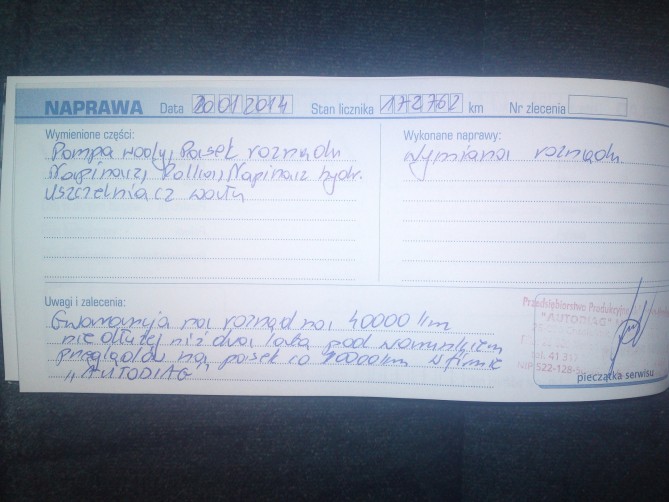 NAPRAWA Data 20 01 2014 Stan licznika 172 762 km Nr zlecenia
Wymienione części:
Pompa wody, Pasek rozrządu
Napinacz, Rolka, Napinacz hydr.
Uszczelniacz wału
Wykonane naprawy:
Wymiana rozrządu
Uwagi i zalecenia:
Gwarancja na rozrząd na 40000 km
nie dłużej niż dwa lata pod warunkiem
przeglądów na pasek co 10000 km w firmie
"AUTODIAG"
Przedsiębiorstwo
"AUTODIAG"
tel. 41 317
NIP 522-128-
pieczątka serwisu